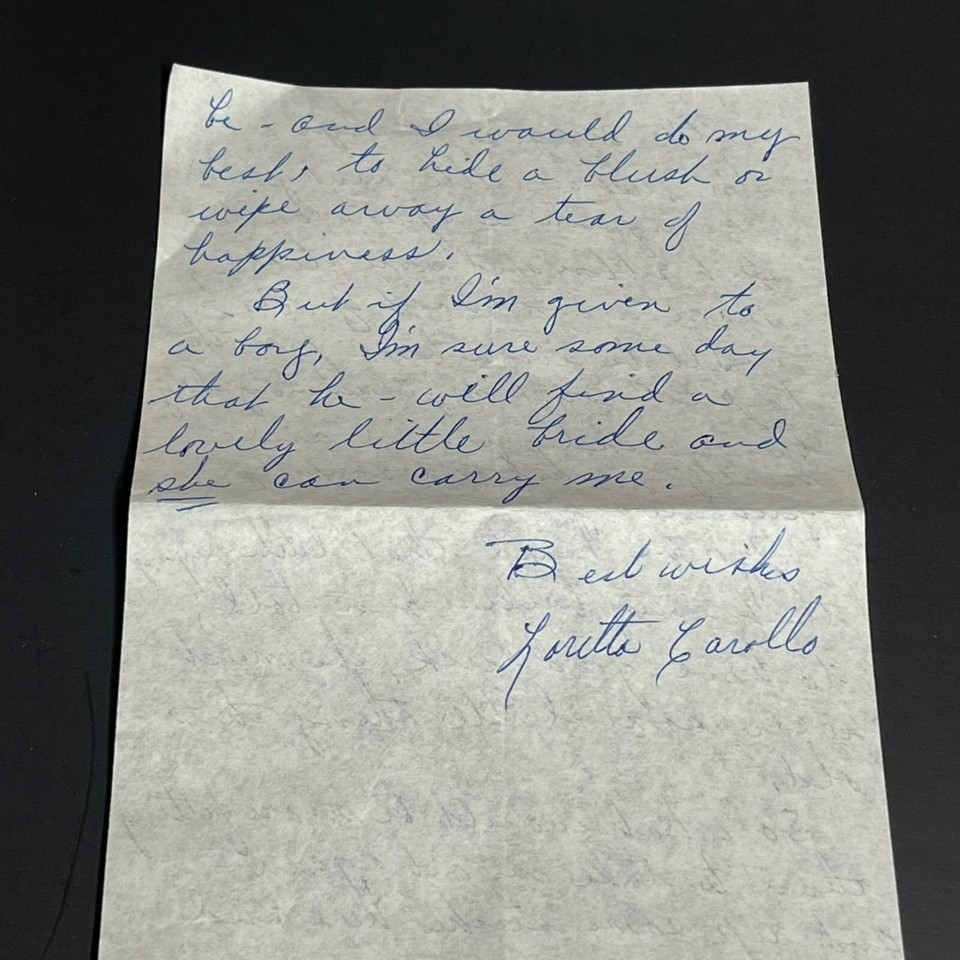 be - and I would do my
best, to hide a blush or
wipe away a tear of
happiness.
But if I'm given to
a boy, I'm sure some day
that he - will find a
lovely little bride and
she can carry me.
Best wishes
Loretta Carollo